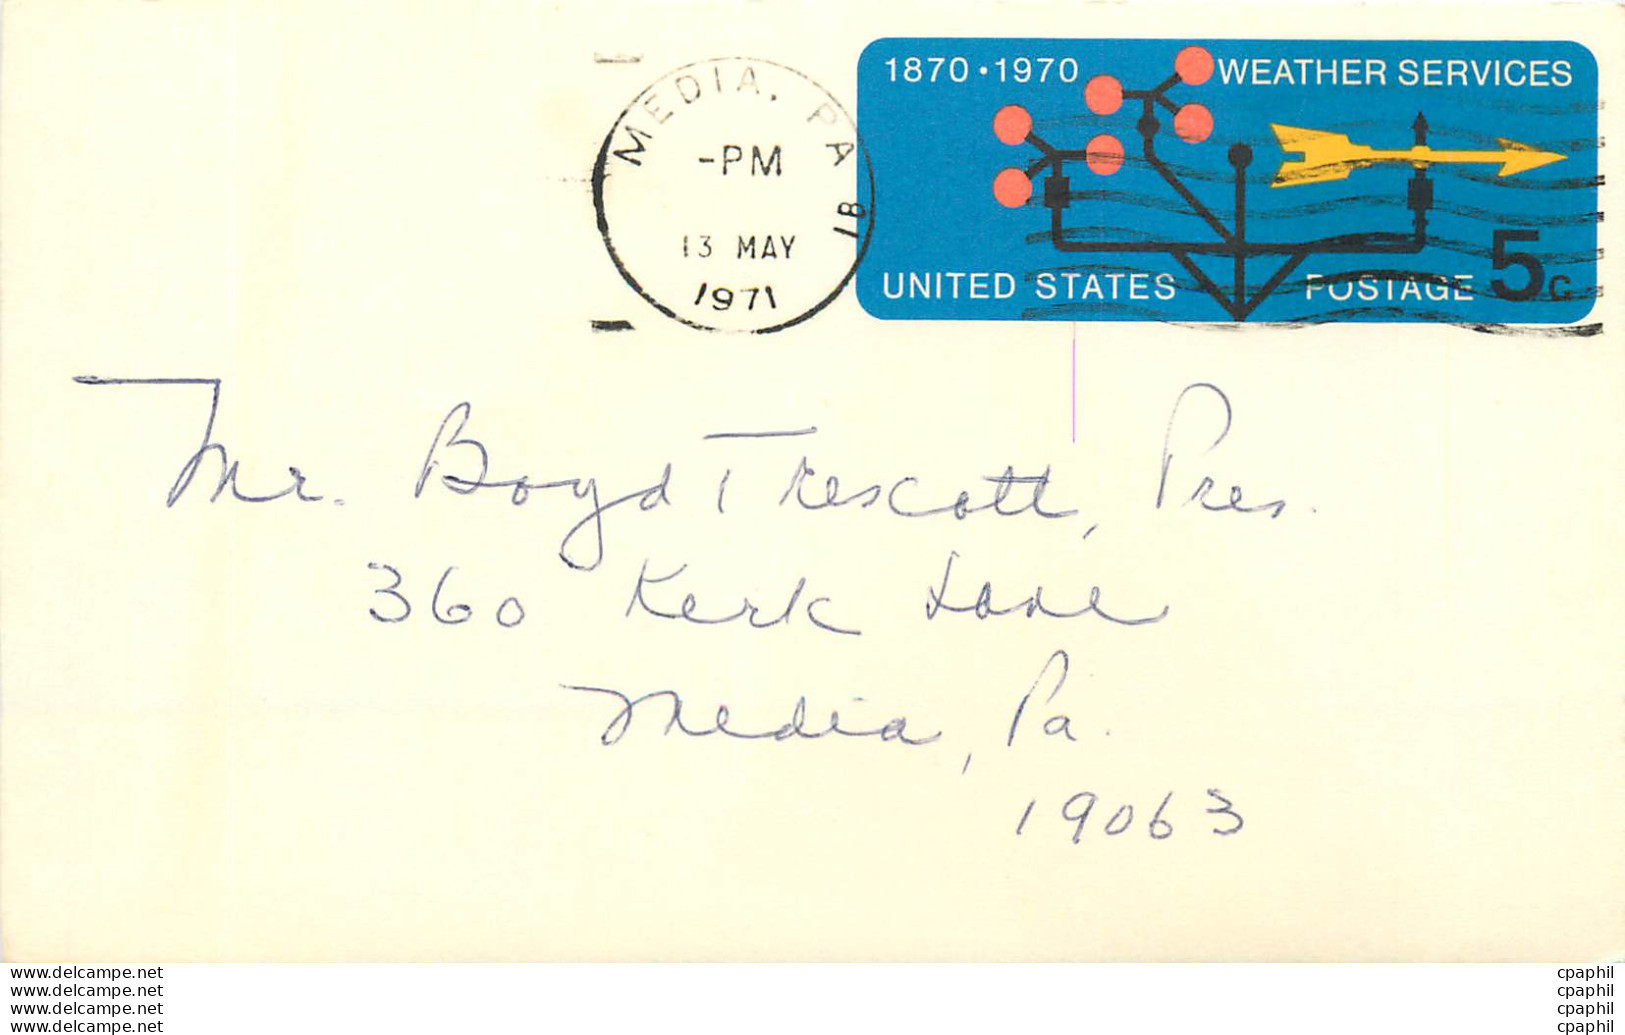 1870 • 1970 WEATHER SERVICES
MEDIA, PA
-PM
13 MAY
1971
1B
UNITED STATES POSTAGE 5c
Mr. Boyd Trescott, Pres.
360 Kerk Lane
Media, Pa.
19063
www.delcampe.net cpaphil
www.delcampe.net cpaphil
www.delcampe.net cpaphil
www.delcampe.net cpaphil